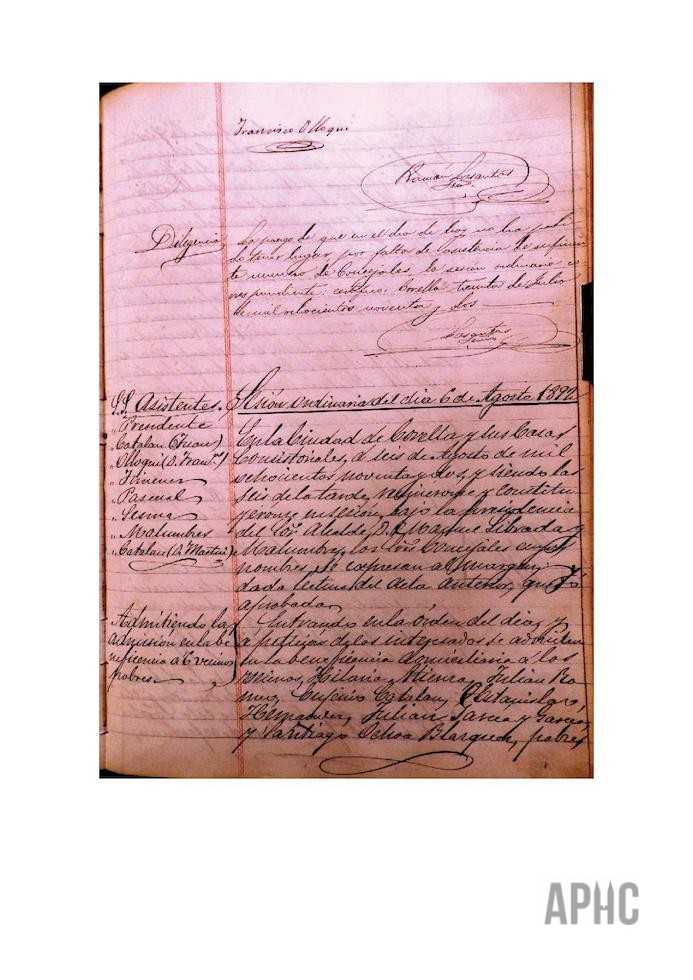 Francisco Olloqui
Román Lasantas
Srio.
Diligencia La pongo de que en el dia de hoy no ha podi-
do tener lugar por falta de asistencia de suficien
te numero de Concejales, la sesion ordinaria co-
rrespondiente: certifico: Corella treinta de Julio
de mil ochocientos noventa y dos
Lasantas
Srio.
S.S. Asistentes.
" Presidente
Catalan (Juan)
Olloqui (D. Franco.)
" Jimenez
" Pascual
" Sesma
" Malumbres
" Catalan (D. Martin)
Sesión ordinaria del dia 6 de Agosto 1892
En la Ciudad de Corella y sus Casas
Consistoriales, a seis de Agosto de mil
ochocientos noventa y dos, y siendo las
seis de la tarde, se reunieron y constitu
yeron en sesion bajo la presidencia
del Sor. Alcalde, D. Manuel Librada y
Malumbres, los Sres. Concejales cuyos
nombres se expresan al margen y
dada lectura del acta anterior, quedó
aprobada.
Admitiendo la
admisión en la be
neficencia a 6 vecinos
pobres.
Entrando en la órden del dia, y
a petición de los interesados se admiten
en la beneficencia domiciliaria á los
mismos, Hilario, Julian Ra
mos, Eugenio Catalan, Estanislao,
Hernandez, Julian Garcia y Garcia,
y Santiago Ochoa Blazquez, pobres
APHC